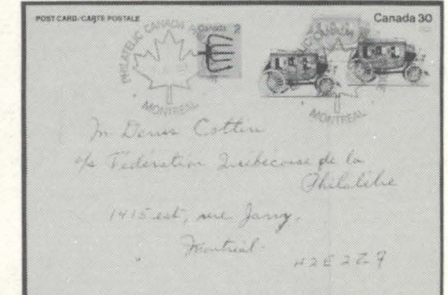 POST CARD/CARTE POSTALE
Canada 2
Canada 30
PHILATELIC CANADA
MONTREAL
MONTREAL
M Denis Cottin
a/s Federation Quebecoise de la
Philatélie
1415 est, rue Jarry,
Montreal
H2E 2Z7